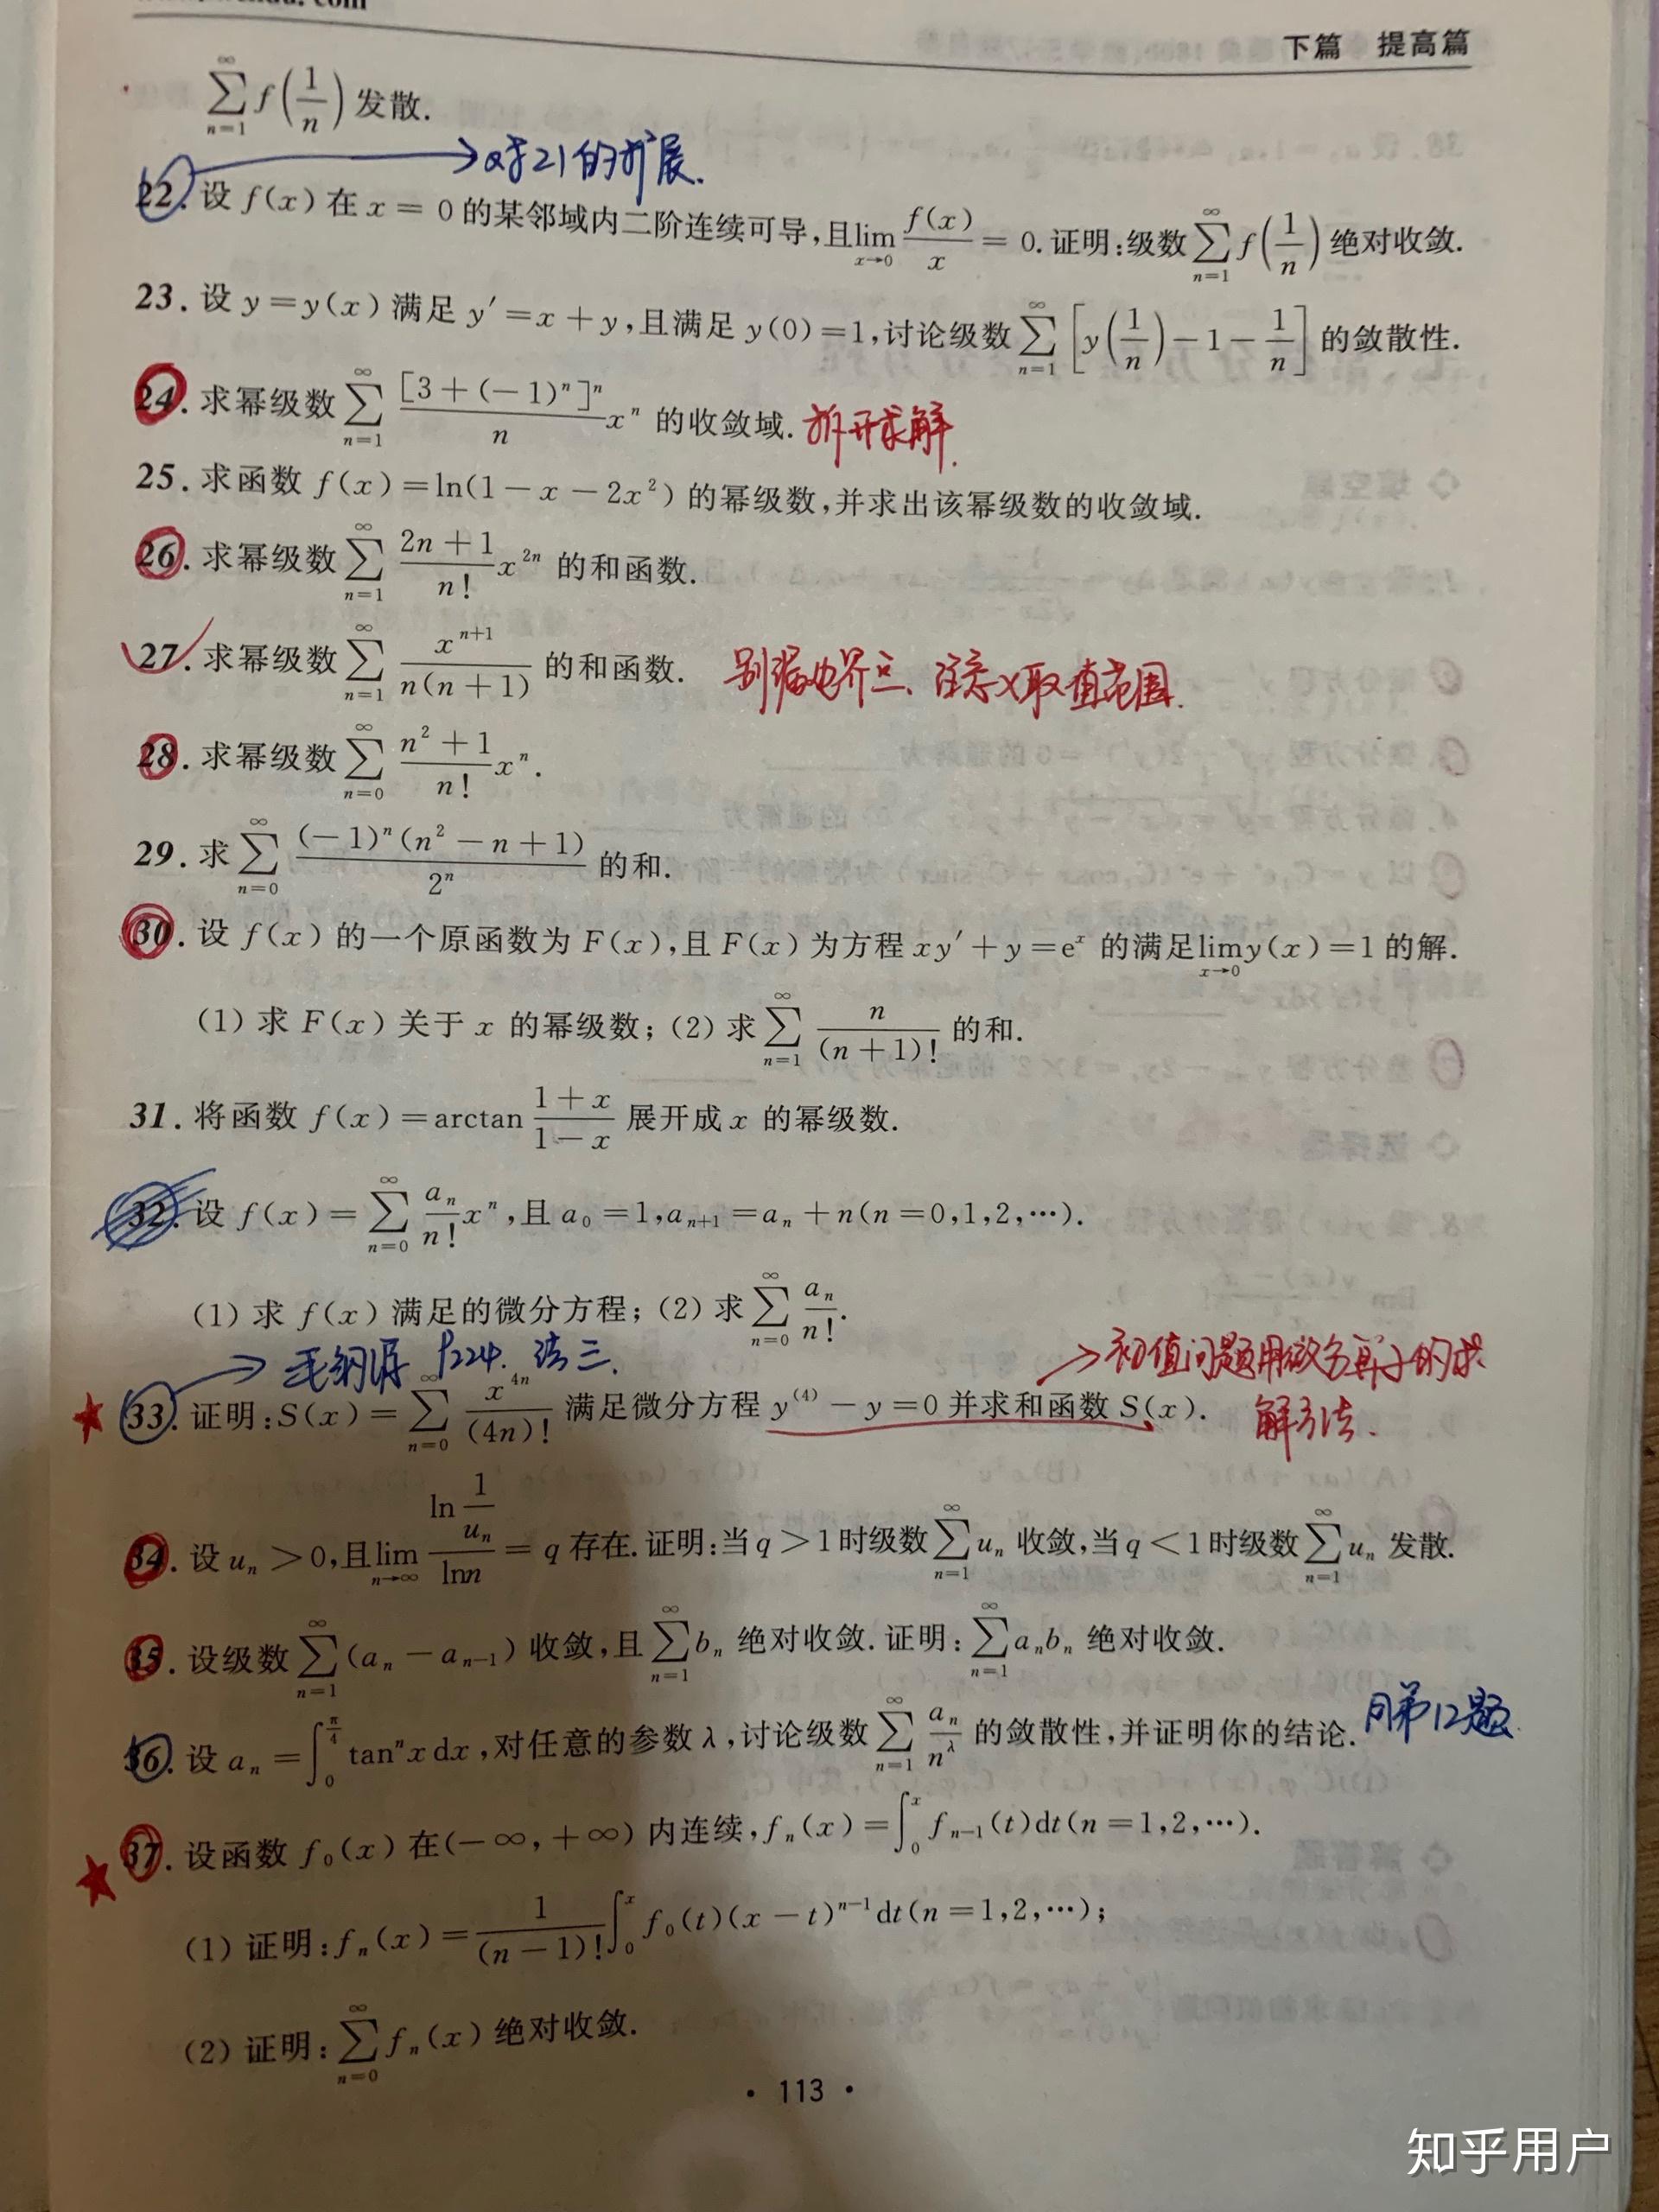 下篇 提高篇
∑_{n=1}^{∞} f(1/n) 发散.
→对21的扩展.
22. 设 f(x) 在 x = 0 的某邻域内二阶连续可导,且 lim_{x→0} f(x)/x = 0. 证明:级数 ∑_{n=1}^{∞} f(1/n) 绝对收敛.
23. 设 y=y(x) 满足 y′=x+y,且满足 y(0)=1,讨论级数 ∑_{n=1}^{∞} [y(1/n)−1−1/n] 的敛散性.
24. 求幂级数 ∑_{n=1}^{∞} [3+(−1)^n]^n/n x^n 的收敛域. 拆开求解.
25. 求函数 f(x)=ln(1−x−2x²) 的幂级数,并求出该幂级数的收敛域.
26. 求幂级数 ∑_{n=1}^{∞} (2n+1)/n! x^{2n} 的和函数.
27. 求幂级数 ∑_{n=1}^{∞} x^{n+1}/(n(n+1)) 的和函数. 别漏边界点、注意x取值范围.
28. 求幂级数 ∑_{n=0}^{∞} (n²+1)/n! x^n.
29. 求 ∑_{n=0}^{∞} (−1)^n(n²−n+1)/2^n 的和.
30. 设 f(x) 的一个原函数为 F(x),且 F(x) 为方程 xy′+y=e^x 的满足 lim_{x→0} y(x)=1 的解.
(1) 求 F(x) 关于 x 的幂级数; (2) 求 ∑_{n=1}^{∞} n/(n+1)! 的和.
31. 将函数 f(x)=arctan (1+x)/(1−x) 展开成 x 的幂级数.
32. 设 f(x)=∑_{n=0}^{∞} a_n/n! x^n,且 a_0=1,a_{n+1}=a_n+n(n=0,1,2,⋯).
(1) 求 f(x) 满足的微分方程; (2) 求 ∑_{n=0}^{∞} a_n/n!.
→毛纲源 P224. 法三.
→初值问题用微分算子的求
33. 证明:S(x)=∑_{n=0}^{∞} x^{4n}/(4n)! 满足微分方程 y^{(4)}−y=0 并求和函数 S(x). 解方法.
34. 设 u_n>0,且 lim_{n→∞} ln(1/u_n)/ln n = q 存在. 证明:当 q>1 时级数 ∑_{n=1}^{∞} u_n 收敛,当 q<1 时级数 ∑_{n=1}^{∞} u_n 发散.
35. 设级数 ∑_{n=1}^{∞} (a_n−a_{n−1}) 收敛,且 ∑_{n=1}^{∞} b_n 绝对收敛. 证明: ∑_{n=1}^{∞} a_n b_n 绝对收敛.
36. 设 a_n=∫_0^{π/4} tan^n x dx,对任意的参数 λ,讨论级数 ∑_{n=1}^{∞} a_n/n^λ 的敛散性,并证明你的结论. 同第12题.
37. 设函数 f_0(x) 在(−∞,+∞) 内连续,f_n(x)=∫_0^x f_{n−1}(t)dt(n=1,2,⋯).
(1) 证明:f_n(x)=1/(n−1)! ∫_0^x f_0(t)(x−t)^{n−1}dt(n=1,2,⋯);
(2) 证明:∑_{n=0}^{∞} f_n(x) 绝对收敛.
· 113 ·
知乎用户